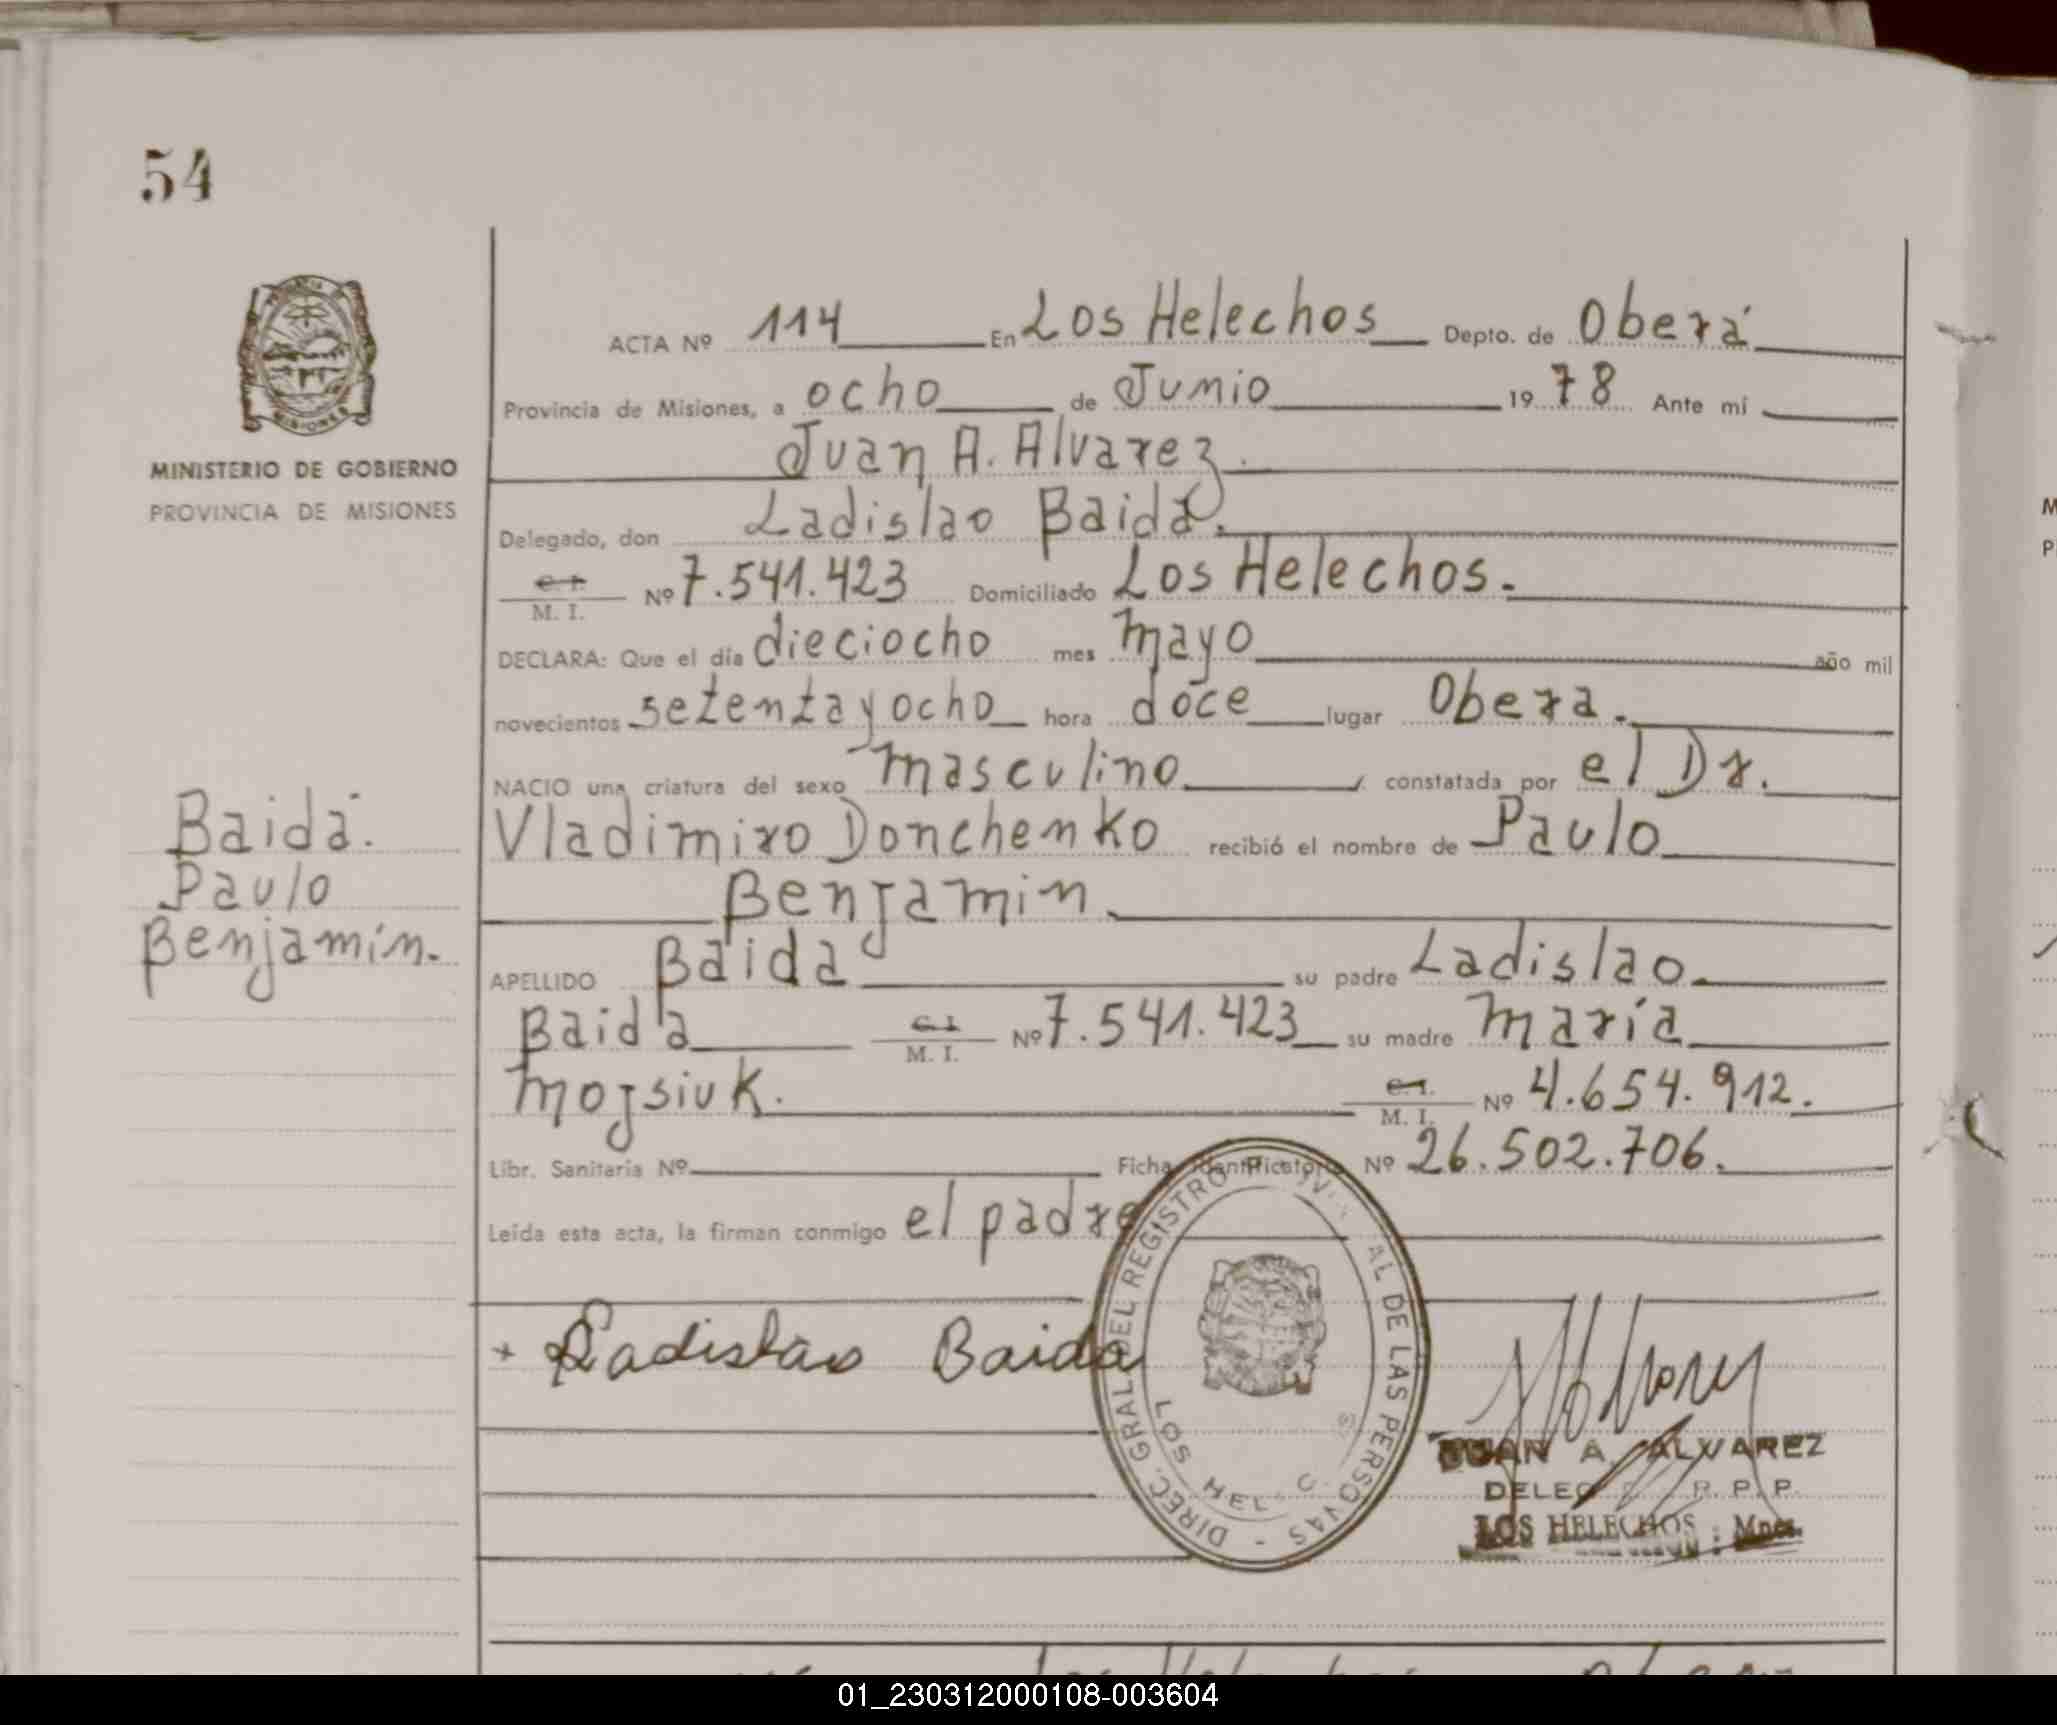 54
ACTA Nº 114 En Los Helechos Depto. de Oberá
Provincia de Misiones, a ocho de Junio 1978 Ante mí
Juan A. Alvarez.
MINISTERIO DE GOBIERNO
PROVINCIA DE MISIONES
Delegado, don Ladislao Baida.
C. I. / M. I. Nº 7.541.423 Domiciliado Los Helechos.
DECLARA: Que el día dieciocho mes mayo año mil
novecientos setenta y ocho hora doce lugar Obera.
NACIO una criatura del sexo masculino constatada por el Dr.
Vladimiro Donchenko recibió el nombre de Paulo
Benjamin.
Baida.
Paulo
Benjamín.
APELLIDO Baida su padre Ladislao.
Baida C. I. / M. I. Nº 7.541.423 su madre María
Mojsiuk. C. I. / M. I. Nº 4.654.912.
Libr. Sanitaria Nº Ficha Identificatoria Nº 26.502.706.
Leída esta acta, la firman conmigo el padre
+ Ladislao Baida
DIREC. GRAL. DEL REGISTRO AL DE LAS PERSONAS -
LOS HEL
JUAN A. ALVAREZ
DELEG R. P. P.
LOS HELECHOS : Mnes.
01_230312000108-003604